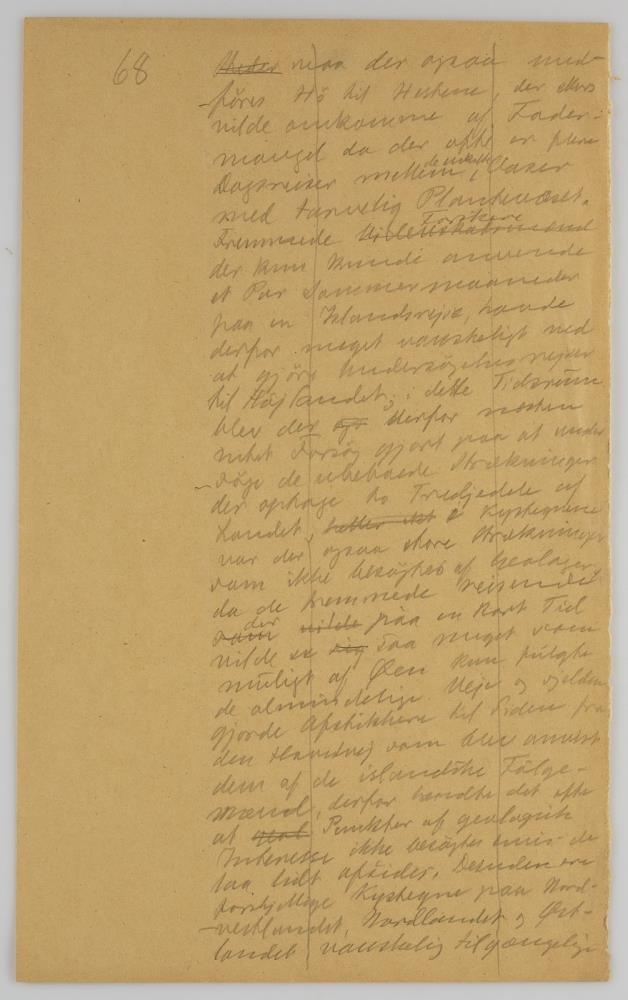 68
Steder maa der ogsaa med-
föres Hö til Hestene, der ellers
vilde omkomme af Foder-
mangel da der ofte er flere
Dagsreiser mellem de enkelte Oaser
med tarvelig Plantevæxt.
Fremmede Videnskabsmænd Forskere
der kun kunde anvende
et Par Sommermaaneder
paa en Islandsrejse, havde
derfor meget vanskeligt ved
at gjöre Undersögelsesrejser
til Höjlandet; i dette Tidsrum
blev der derfor næsten
intet Forsög gjort paa at under
söge de ubeboede Strækninger
der optage to Tredjedele af
Landet, heller ikke i Kystegnene
var der ogsaa store Strækninger
som ikke besögtes af Geologer,
da de fremmede rejsende
som der vilde paa en kort Tid
vilde se sig saa meget som
muligt af Öen kun fulgte
de almindelige Veje og sjelden
gjorde Afstikkere til Siden fra
den Hovedvej som blev anvist
dem af de islandske Fölge-
mænd, derfor hændte det ofte
at Punkter af geologisk
Interesse ikke besögtes naar de
laa lidt afsides. Desuden ere
forskjellige Kystegne paa Nord-
vestlandet, Nordlandet og Öst-
landet vanskelig tilgængelige